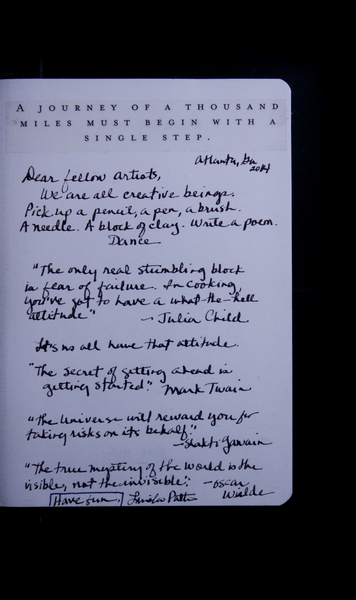 A JOURNEY OF A THOUSAND
MILES MUST BEGIN WITH A
SINGLE STEP.
Atlanta, Ga
2014
Dear fellow artists,
We are all creative beings.
Pick up a pencil, a pen, a brush.
A needle. A block of clay. Write a poem.
Dance
"The only real stumbling block
is fear of failure. In cooking,
you've got to have a what-the-hell
attitude"
- Julia Child
Let's us all have that attitude.
"The secret of getting ahead is
getting started." Mark Twain
"The Universe will reward you for
taking risks on its behalf."
- Shakti Gawain
"The true mystery of the world is the
visible, not the invisible." - Oscar
Wilde
Have fun.